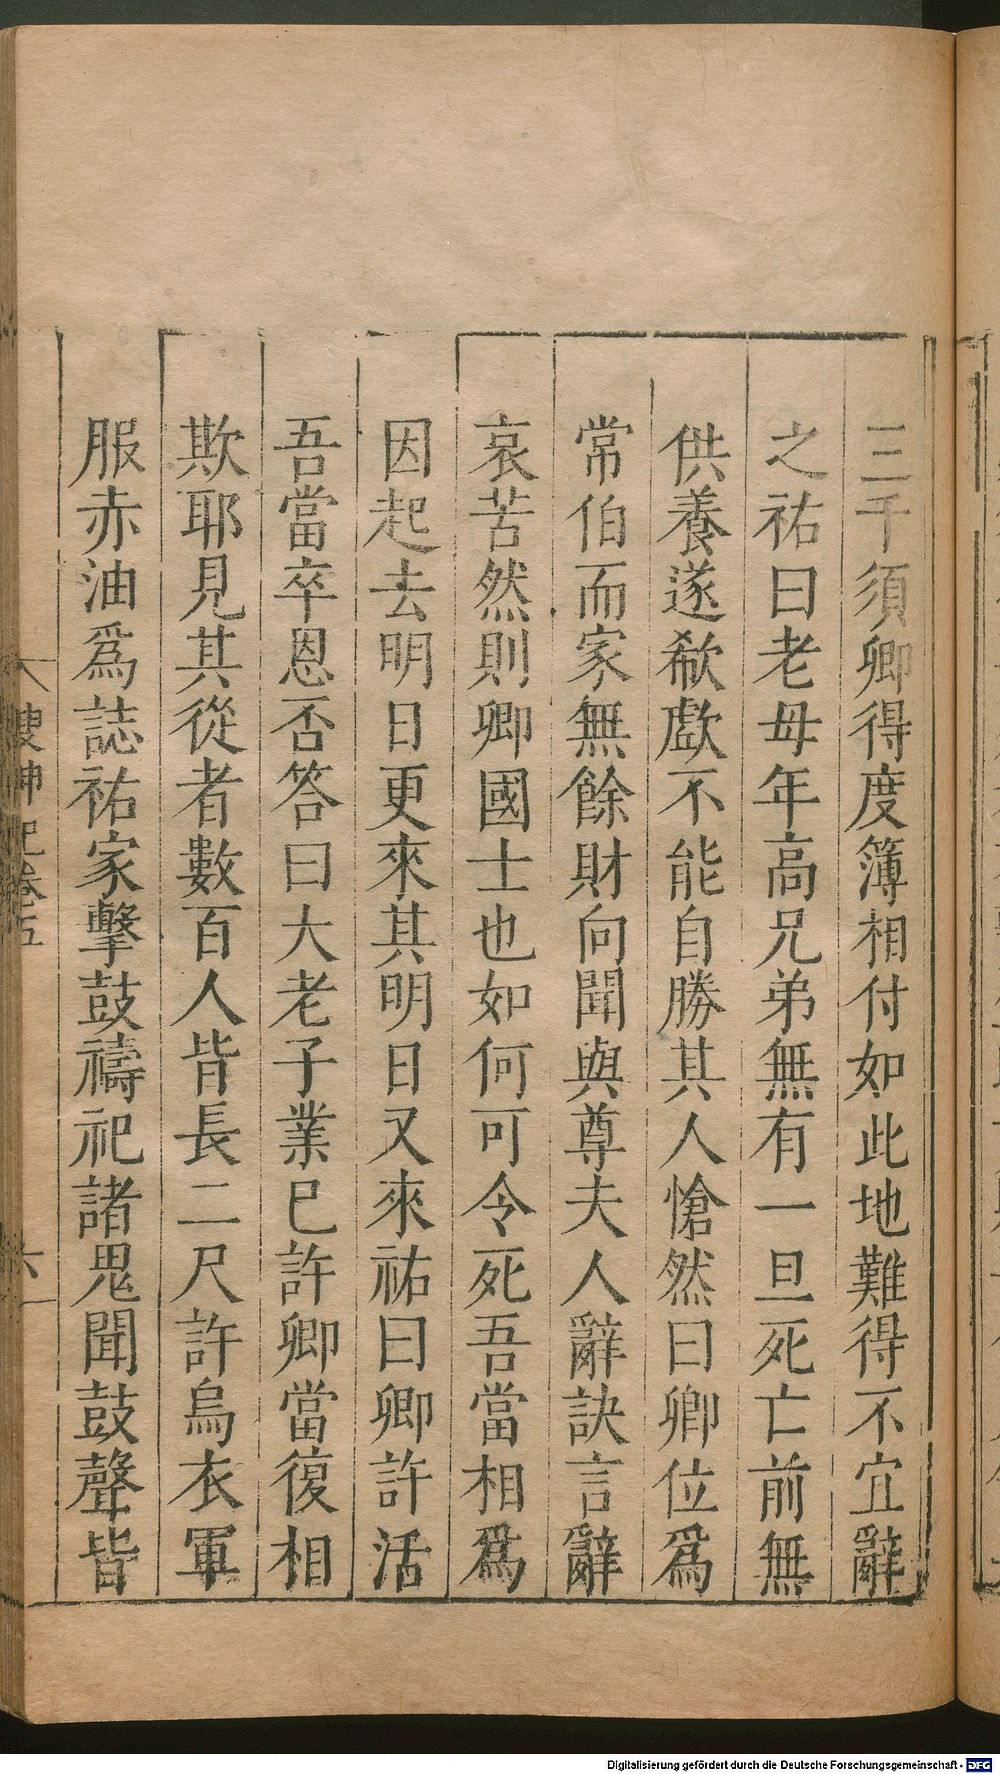 三千須卿得度簿相付如此地難得不宜辭
之祐曰老母年高兄弟無有一旦死亡前無
供養遂欷歔不能自勝其人愴然曰卿位爲
常伯而家無餘財向聞與尊夫人辭訣言辭
哀苦然則卿國士也如何可令死吾當相爲
因起去明日更來其明日又來祐曰卿許活
吾當卒恩否答曰大老子業已許卿當復相
欺耶見其從者數百人皆長二尺許烏衣軍
服赤油爲誌祐家擊鼓禱祀諸鬼聞鼓聲皆
搜神記卷五
六
Digitalisierung gefördert durch die Deutsche Forschungsgemeinschaft - DFG